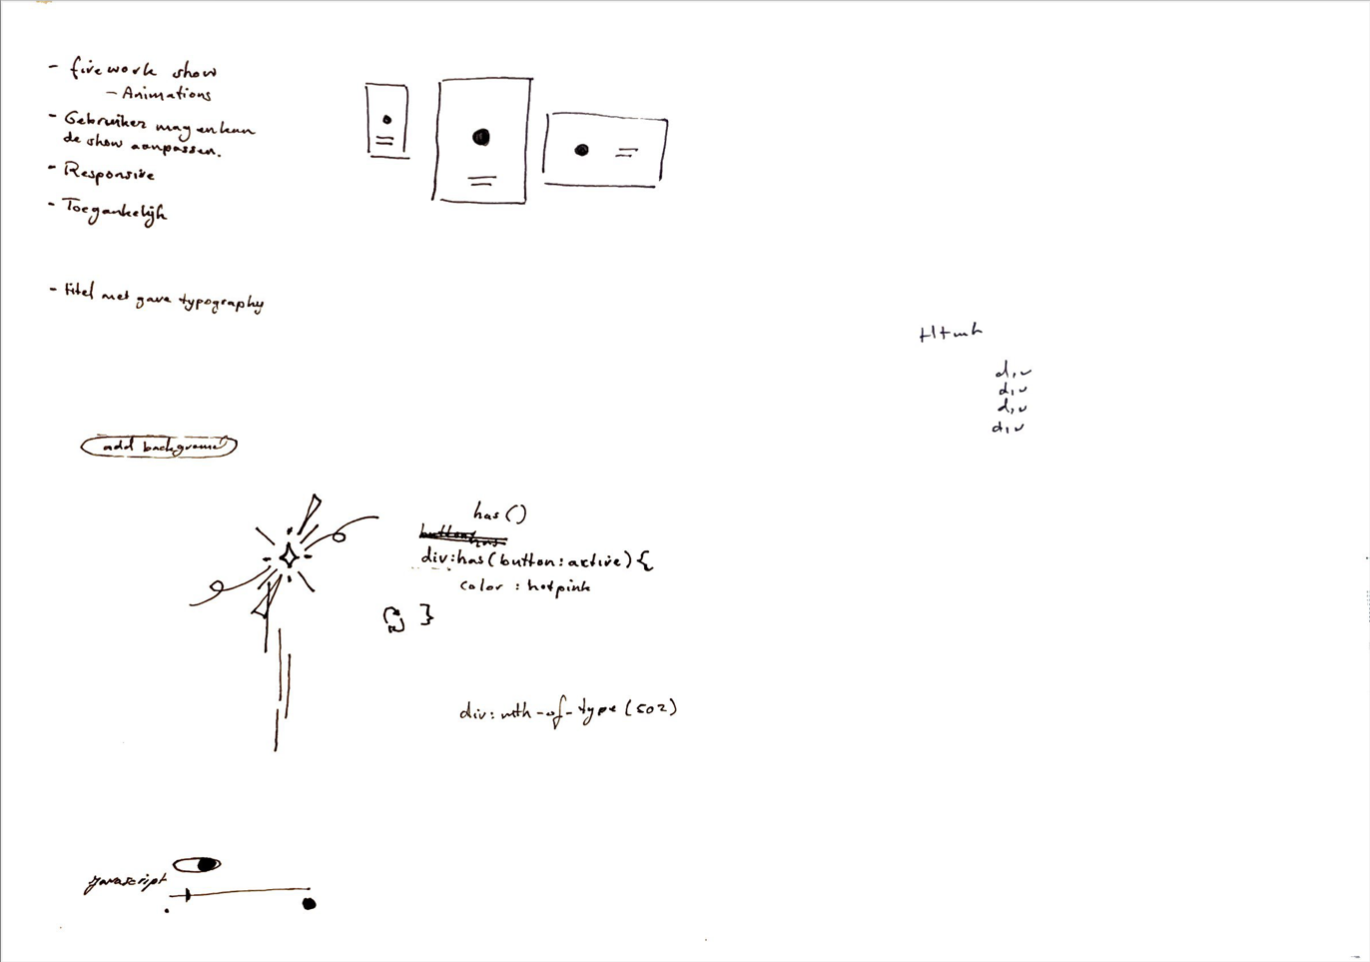 - firework show
- Animations
- Gebruiker mag en kan
de show aanpassen.
- Responsive
- Toegankelijk
- titel met gave typography
Html
div
div
div
div
add background
has()
div:has(button:active){
color : hotpink
}
div:nth-of-type(502)
javascript